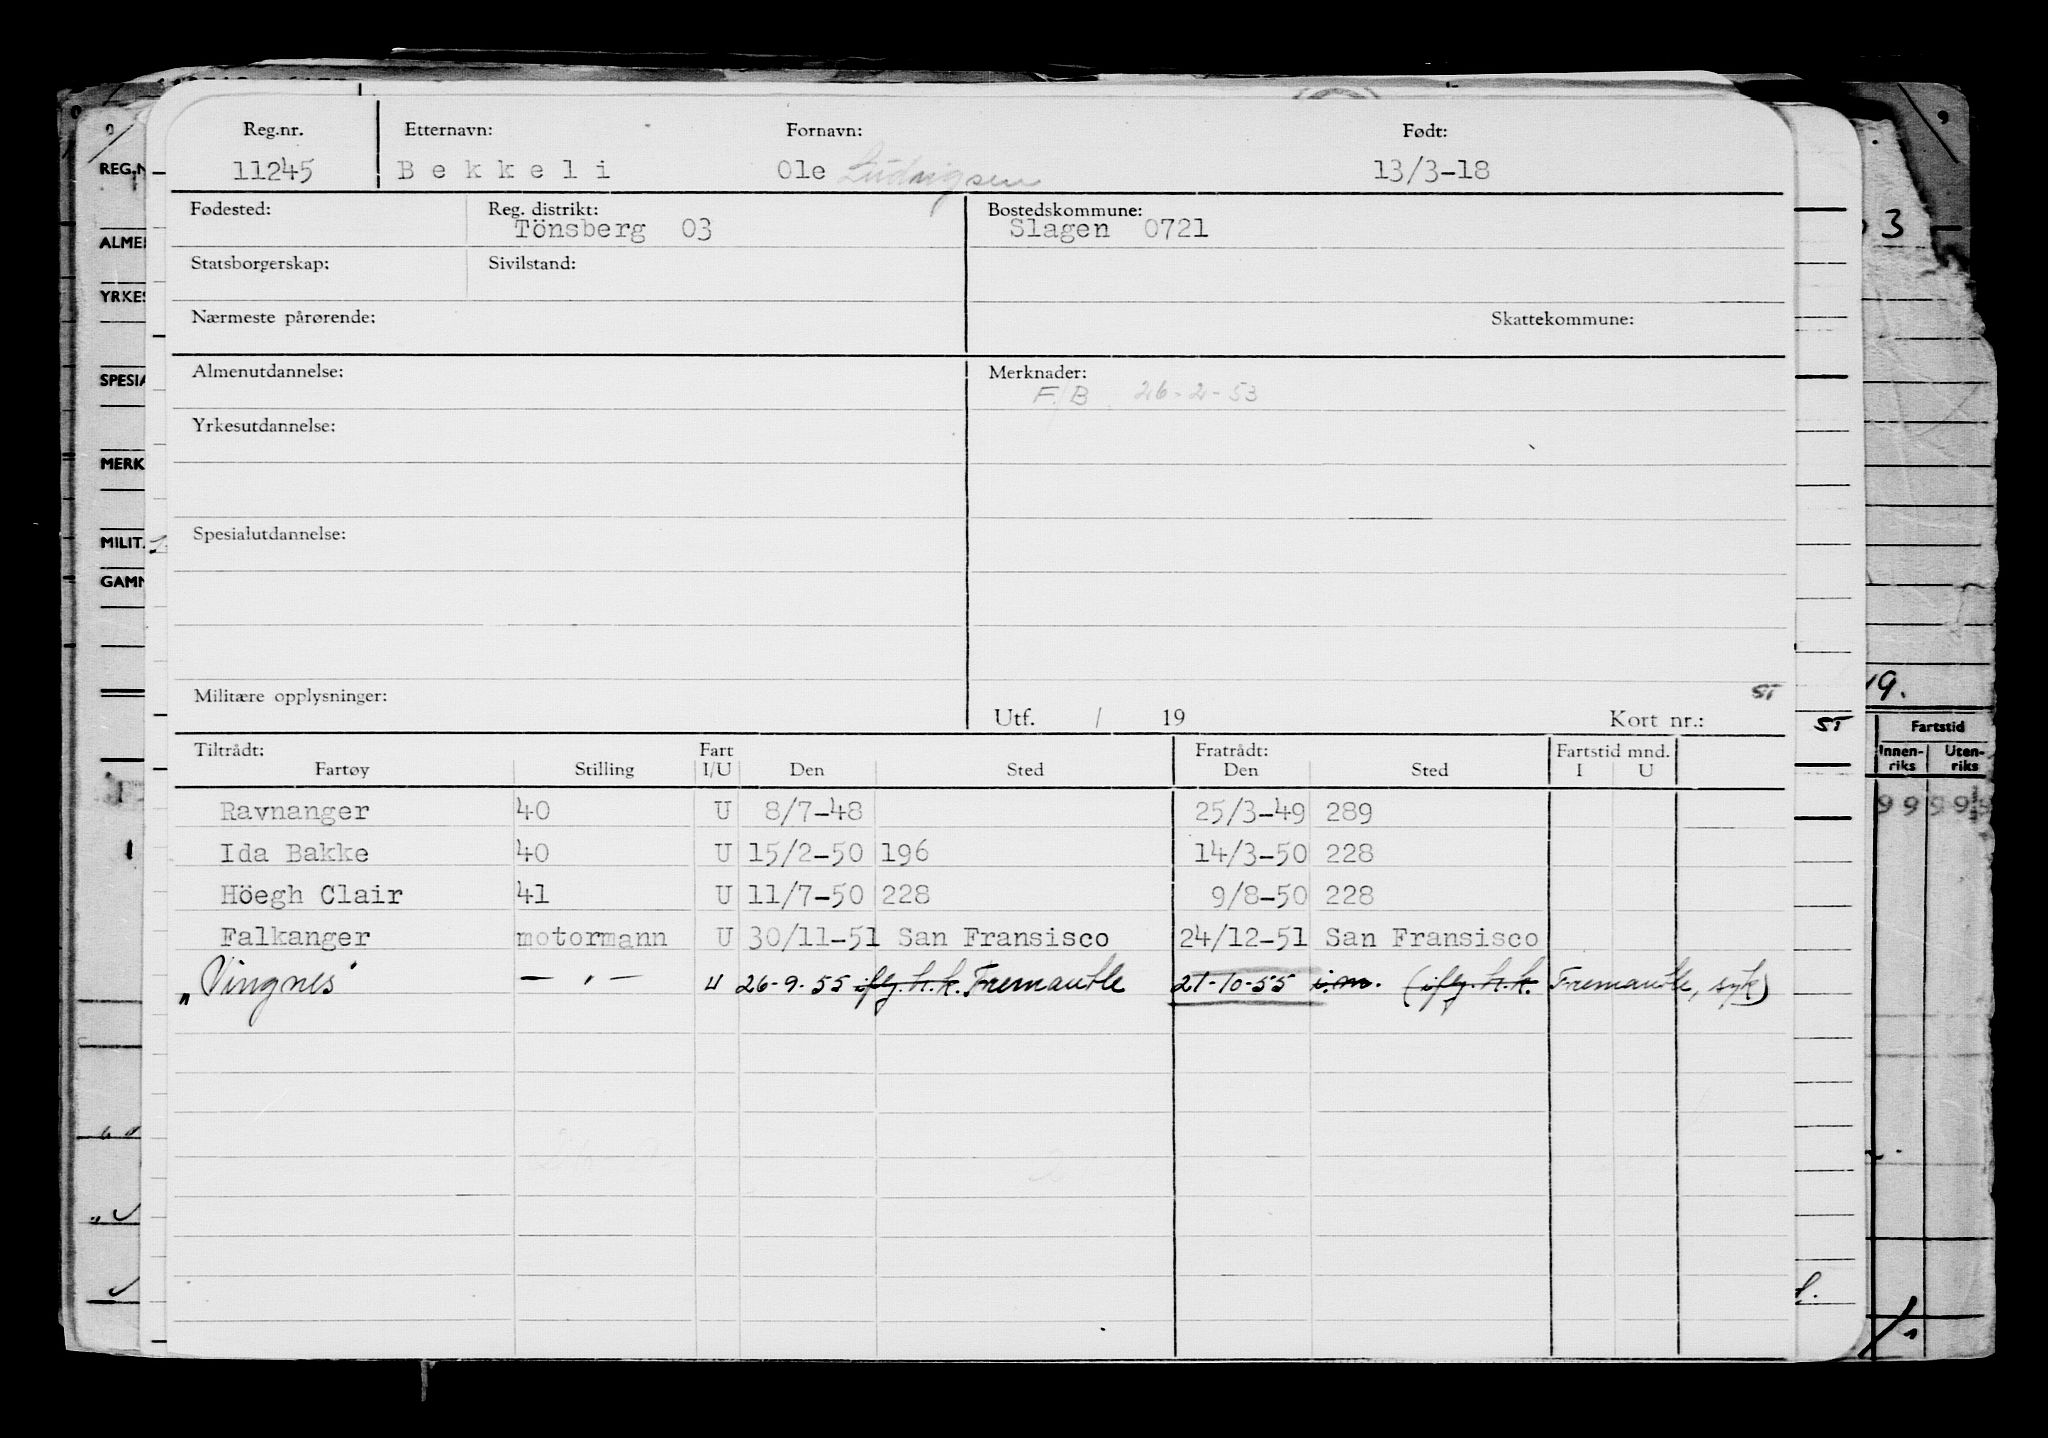 Reg.nr. Etternavn: Fornavn: Født:
11245 B e k k e l i Ole Ludvigsen 13/3-18
Fødested: Reg. distrikt: Bostedskommune:
Tönsberg 03 Slagen 0721
Statsborgerskap: Sivilstand:
Nærmeste pårørende: Skattekommune:
Almenutdannelse: Merknader:
F/B 26-2-53
Yrkesutdannelse:
Spesialutdannelse:
Militære opplysninger: ST
Utf. / 19 Kort nr.:
Tiltrådt: Fart Fratrådt: Fartstid mnd.
Fartøy Stilling I/U Den Sted Den Sted I U
Ravnanger 40 U 8/7-48 25/3-49 289
Ida Bakke 40 U 15/2-50 196 14/3-50 228
Höegh Clair 41 U 11/7-50 228 9/8-50 228
Falkanger motormann U 30/11-51 San Fransisco 24/12-51 San Fransisco
„Vingnes" — " — U 26-9-55 iflg. h.k. Fremantle 21-10-55 i.m. (iflg. h.k. Fremantle, syk)
REG.N
ALMEN
YRKES
SPESIA
MERK
MILIT
GAMM
3
19.
ST
Fartstid
Innen-riks Uten-riks
9 9 9 9